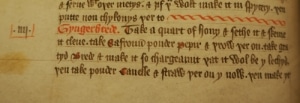 & serue & or metys. & ȝif þu wolt make it in spycery. þen
putte non chykonys þer to
.iiij. Gyngerbrede. Take a quart of hony & sethe it & skeme
it clene. take Safroun pouder Pepir & throw þer on. take gra
tyd Bred & make it so chargeaunt þat it wol be y lechyd.
þen take pouder Canelle & straw þer on y now. þen make yt